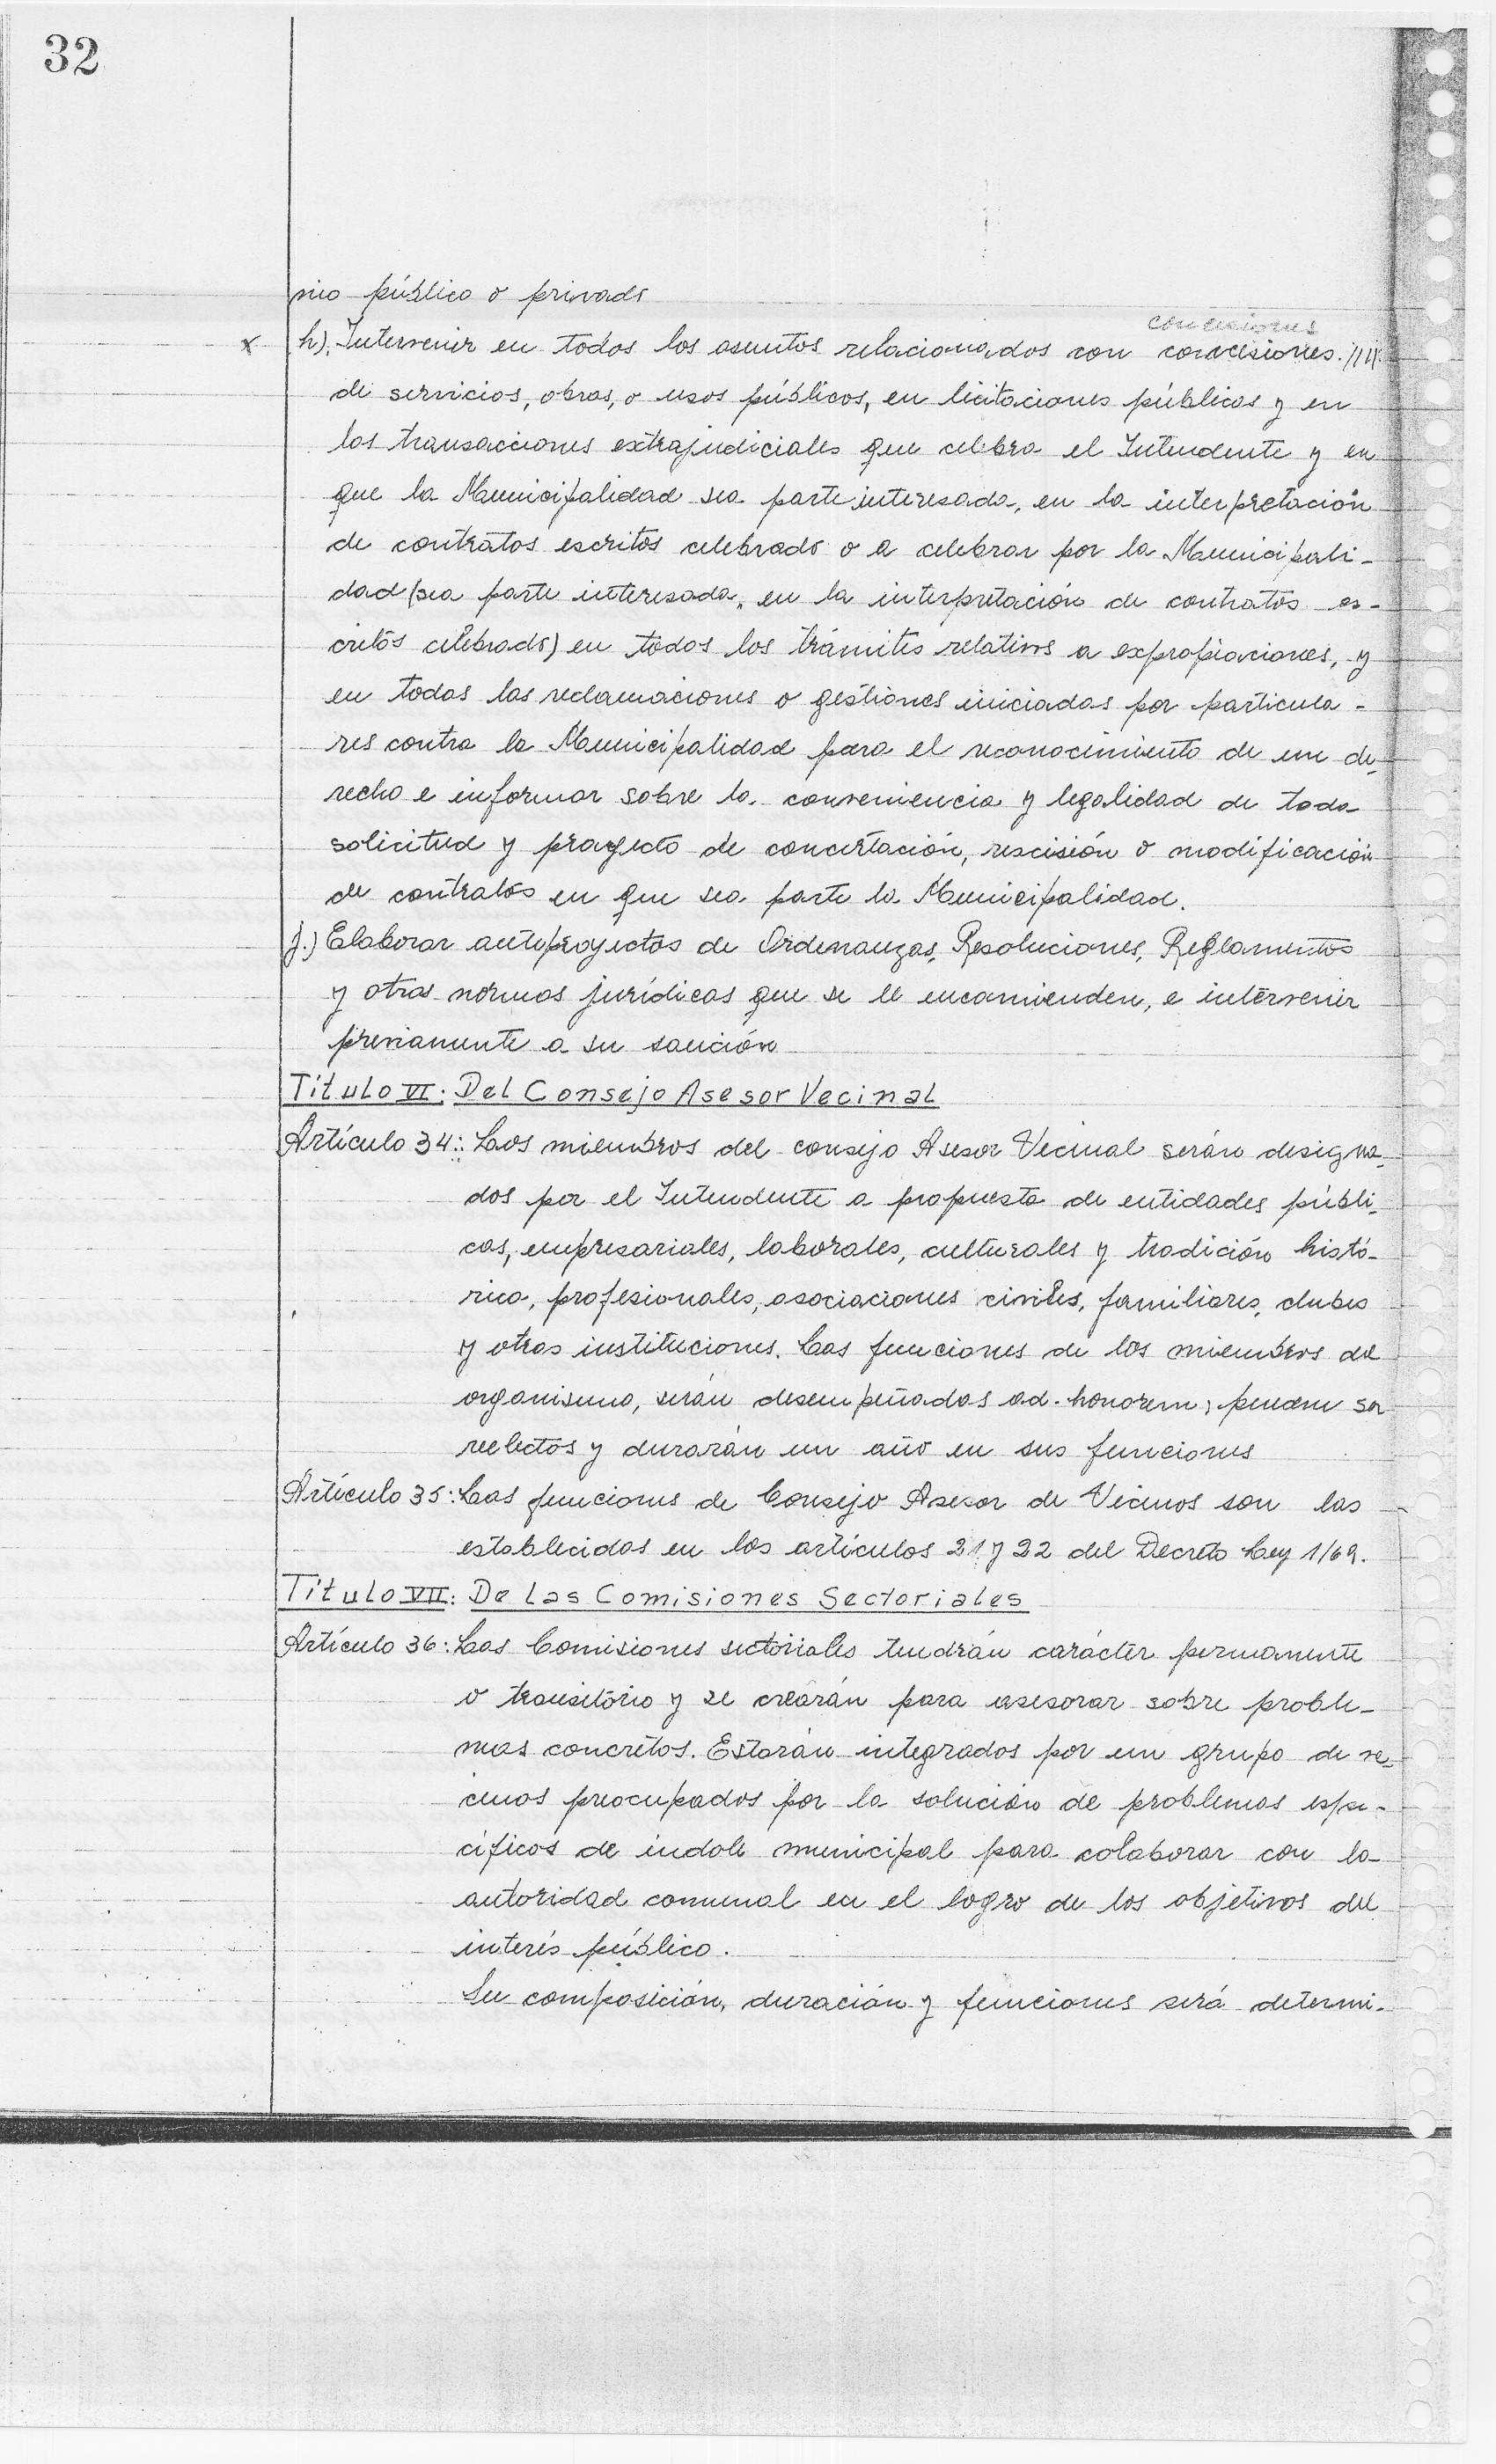 32
nio público o privado
concesiones
x h). Intervenir en todos los asuntos relacionados con concesiones. ////.
de servicios, obras, o usos públicos, en licitaciones públicas y en
las transacciones extrajudiciales que celebra el Intendente y en
que la Municipalidad sea parte interesada, en la interpretación
de contratos escritos celebrado o a celebrar por la Municipali-
dad (sea parte interesada, en la interpretación de contratos es-
critos celebrado) en todos los trámites relativos a expropiaciones, y
en todas las reclamaciones o gestiones iniciadas por particula-
res contra la Municipalidad para el reconocimiento de un de-
recho e informar sobre la conveniencia y legalidad de toda
solicitud y proyecto de concertación, rescisión o modificación
de contratos en que sea parte la Municipalidad.
j.) Elaborar anteproyectos de Ordenanzas, Resoluciones, Reglamentos
y otras normas jurídicas que se le encomienden, e intervenir
previamente a su sanción
Título VI: Del Consejo Asesor Vecinal
Artículo 34: Los miembros del consejo Asesor Vecinal serán designa-
dos por el Intendente a propuesta de entidades públi-
cas, empresariales, laborales, culturales y tradición histó-
rica, profesionales, asociaciones civiles, familiares, clubes
y otras instituciones. Las funciones de los miembros del
organismo, serán desempeñadas ad-honorem, pueden ser
reelectos y durarán un año en sus funciones
Artículo 35: Las funciones de Consejo Asesor de Vecinos son las
establecidas en los artículos 21 y 22 del Decreto Ley 1/69.
Título VII: De las Comisiones Sectoriales
Artículo 36: Las Comisiones sectoriales tendrán carácter permanente
o transitorio y se crearán para asesorar sobre proble-
mas concretos. Estarán integrados por un grupo de ve-
cinos preocupados por la solución de problemas espe-
cíficos de índole municipal para colaborar con la
autoridad comunal en el logro de los objetivos del
interés público.
Su composición, duración y funciones será determi-